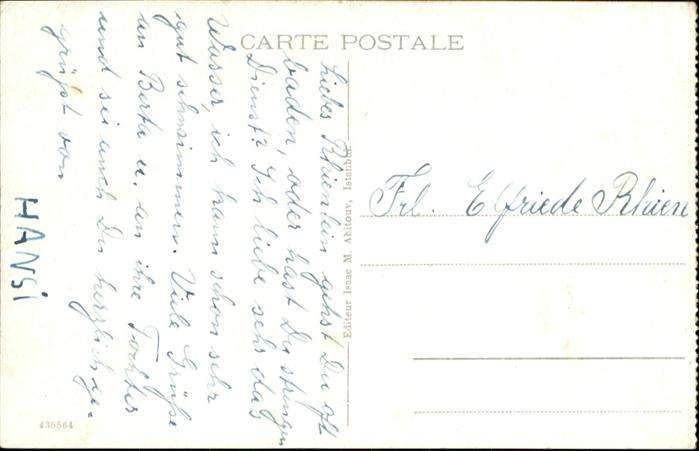 CARTE POSTALE
Liebes Rhienlein gehst Du oft
baden, oder hast Du strengen
Dienst? Ich liebe sehr das
Wasser, ich kann schon sehr
gut schwimmen. Viele Grüße
an Berta u. an ihre Tochter
und sei auch Du herzlich ge-
grüßt von
HANSi
Editeur Isaac M. Ahitouv, Istanbul
Frl. Elfriede Rhien
436564